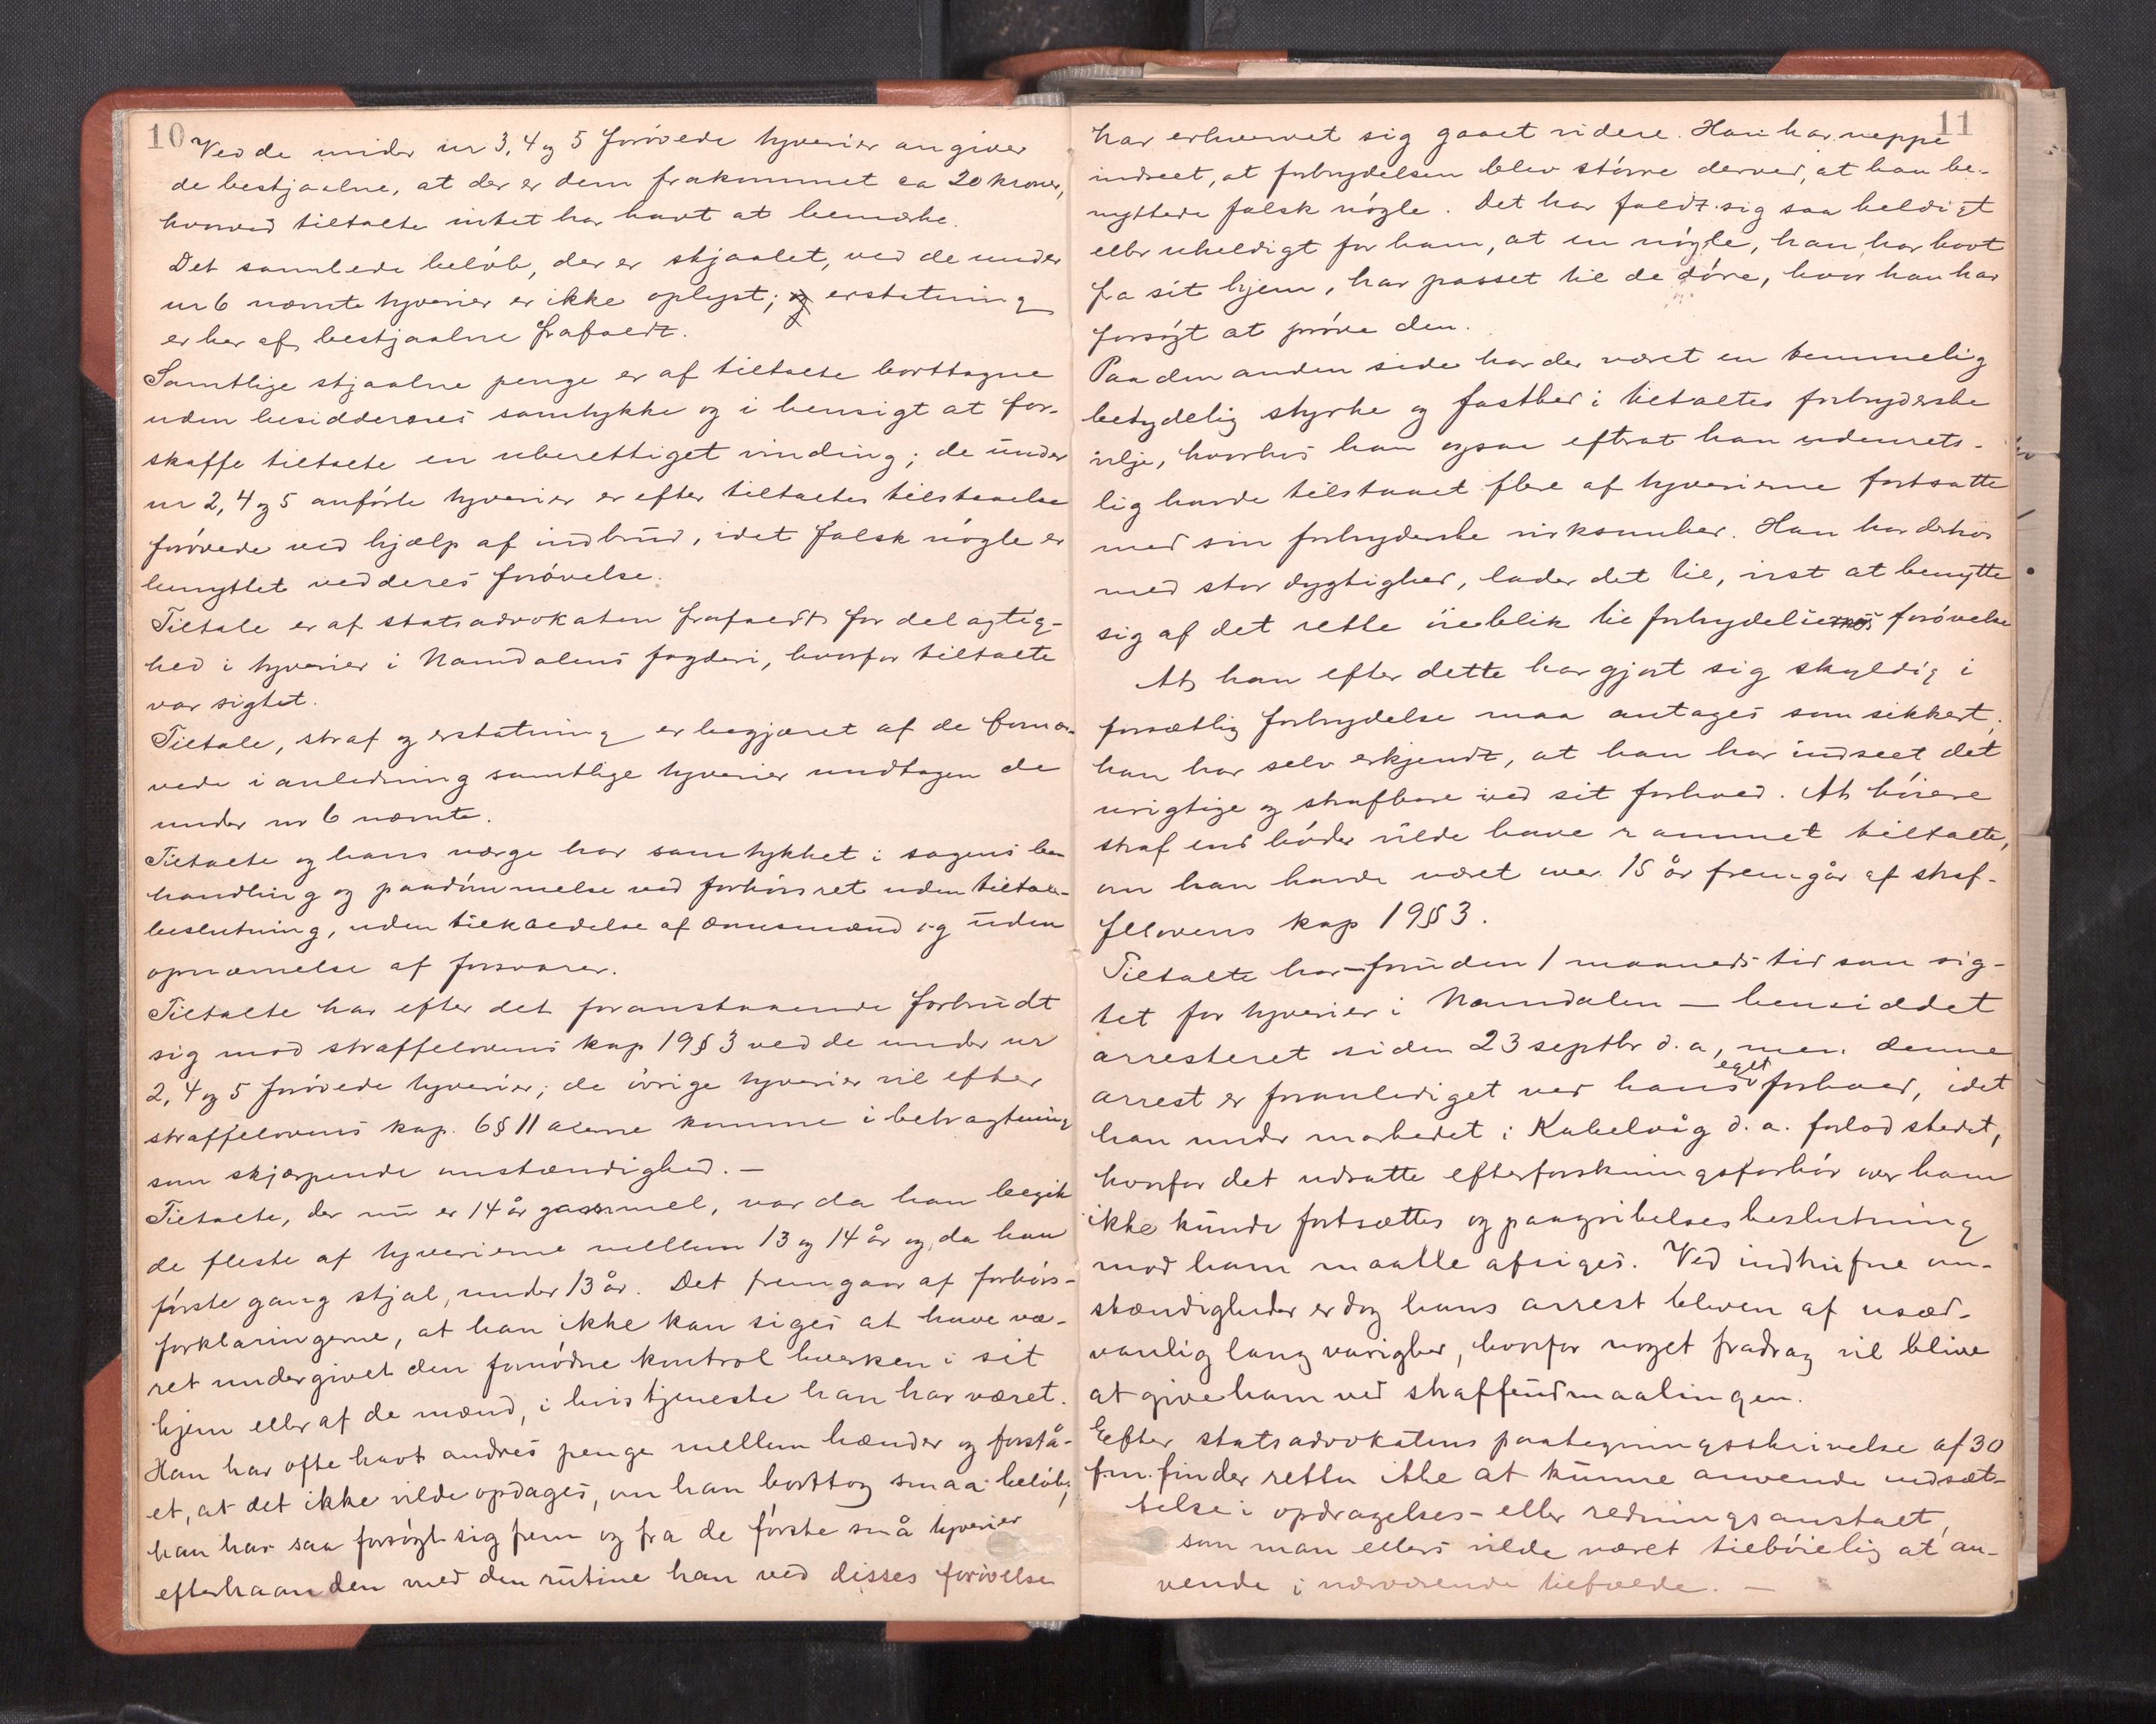 10
Ved de under nr 3, 4 og 5 forøvede tyverier angiver
de bestjaalne, at der er dem frakommet ca 20 kroner,
hvorved tiltalte intet har havt at bemærke.
Det samlede beløb, der er stjaalet, ved de under
nr 6 nævnte tyverier er ikke oplyst; og erstatning
er her af bestjaalne frafaldt.
Samtlige stjaalne penge er af tiltalte borttagne
uden besiddernes samtykke og i hensigt at for-
skaffe tiltalte en uberettiget vinding; de under
nr 2, 4 og 5 anførte tyverier er efter tiltaltes tilstaaelse
forøvede ved hjælp af indbrud, idet falsk nøgle er
benyttet ved deres forøvelse.
Tiltale er af statsadvokaten frafaldt for delagtig-
hed i tyverier i Namdalens fogderi, hvorfor tiltalte
var sigtet.
Tiltale, straf og erstatning er begjæret af de fornær-
mede i anledning samtlige tyverier undtagen de
under nr 6 nævnte.
Tiltalte og hans værge har samtykket i sagens be
handling og paadømmelse ved forhørsret uden tiltale-
beslutning, uden tilkaldelse af domsmænd og uden
opnævnelse af forsvarer.
Tiltalte har efter det foranstaaende forbrudt
sig mod straffelovens kap 19 § 3 ved de under nr
2, 4 og 5 forøvede tyverier; de øvrige tyverier vil efter
straffelovens kap. 6 § 11 alene komme i betragtning
som skjærpende omstændighed. —
Tiltalte, der nu er 14 år gammel, var da han begik
de fleste af tyverierne mellem 13 og 14 år og, da han
første gang stjal, under 13 år. Det fremgaar af forhørs-
forklaringerne, at han ikke kan siges at have væ-
ret undergivet den fornødne kontrol hverken i sit
hjem eller af de mænd, i hvis tjeneste han har været.
Han har ofte havt andres penge mellem hænder og forstå-
et, at det ikke vilde opdages, om han borttog smaa beløb;
han har saa forsøgt sig frem og fra de første små tyverier
efterhaanden med den rutine han ved disses forøvelse
11
har erhvervet sig gaaet videre. Han har neppe
indseet, at forbrydelsen blev større derved, at han be-
nyttede falsk nøgle. Det har faldt sig saa heldigt
eller uheldigt for ham, at en nøgle, han har havt
fra sit hjem, har passet til de døre, hvor han har
forsøgt at prøve den.
Paa den anden side har der været en temmelig
betydelig styrke og fasthed i tiltaltes forbryderske
vilje, hvorhos han ogsaa efterat han udenrets-
lig havde tilstaaet flere af tyverierne fortsatte
med sin forbryderske virksomhed. Han har derhos
med stor dygtighed, lader det til, vist at benytte
sig af det rette øieblik til forbrydelsernes forøvelse
At han efter dette har gjort sig skyldig i
forsætlig forbrydelse maa antages som sikkert;
han har selv erkjendt, at han har indseet det
urigtige og strafbare ved sit forhold. At høiere
straf end bøder vilde have rammet tiltalte,
om han havde været over 15 år fremgår af straf-
felovens kap 19 § 3.
Tiltalte har – foruden 1 maaneds tid som sig-
tet for tyverier i Namdalen — hensiddet
arresteret siden 23 septbr d. a, men denne
arrest er foranlediget ved hans eget forhold, idet
han under markedet i Kabelvåg d. a. forlod stedet,
hvorfor det udsatte efterforskningsforhør over ham
ikke kunde fortsættes og paagribelsesbeslutning
mod ham maatte afsiges. Ved indtrufne om-
stændigheder er dog hans arrest bleven af usæd-
vanlig lang varighed, hvorfor noget fradrag vil blive
at give ham ved straffeudmaalingen.
Efter statsadvokatens paategningsskrivelse af 30
f.m. finder retten ikke at kunne anvende indsæt-
telse i opdragelses- eller redningsanstalt,
som man ellers vilde været tilbøielig at an-
vende i nærværende tilfælde. —